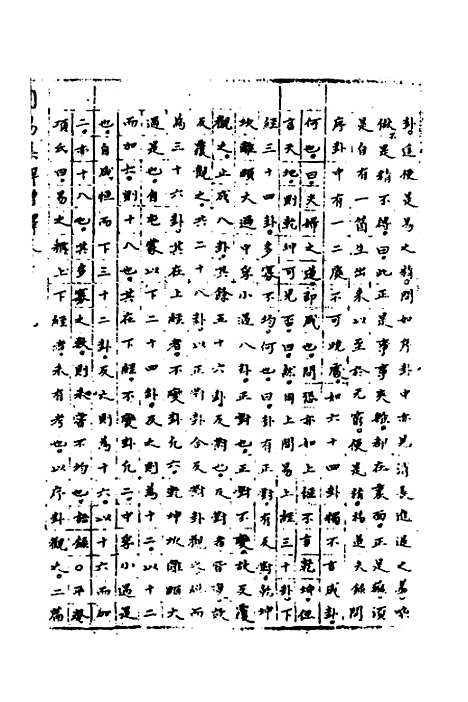 卦這便是易之精問如序卦中亦見消長進退之義喚
做是精不得曰此正是事事夾雜都在裏面正是蘊須
是自有一箇生出來以至於无窮便是精精是夫錄問
序卦中有一二處不可曉處如六十四卦獨不言咸卦
何也曰夫婦之道即咸也問恐亦如上經不言乾坤但
言天地則乾坤可見否曰然問上周易上經三十卦下
經三十四卦多寡不均何也曰卦有正對有反對乾坤
坎離頤大過中孚小過八卦正對也正對不變故反覆
觀之止成八卦其餘五十六卦反對也反對者皆變故
反覆觀之共二十八卦以正對卦合反對卦觀之總而
為三十六卦其在上經者不變卦凡六乾坤坎離頤大
過是也自屯蒙以下二十四卦反之則為十二以十二
而加六則十八也其在下經不變卦凡二中孚小過是
也自咸恒而下三十二卦反之則為十六以十六而加
二亦十八也其多寡之數則未嘗不均也語錄○平菴
項氏曰易之稱上下經者未有考也以序卦觀之二篇